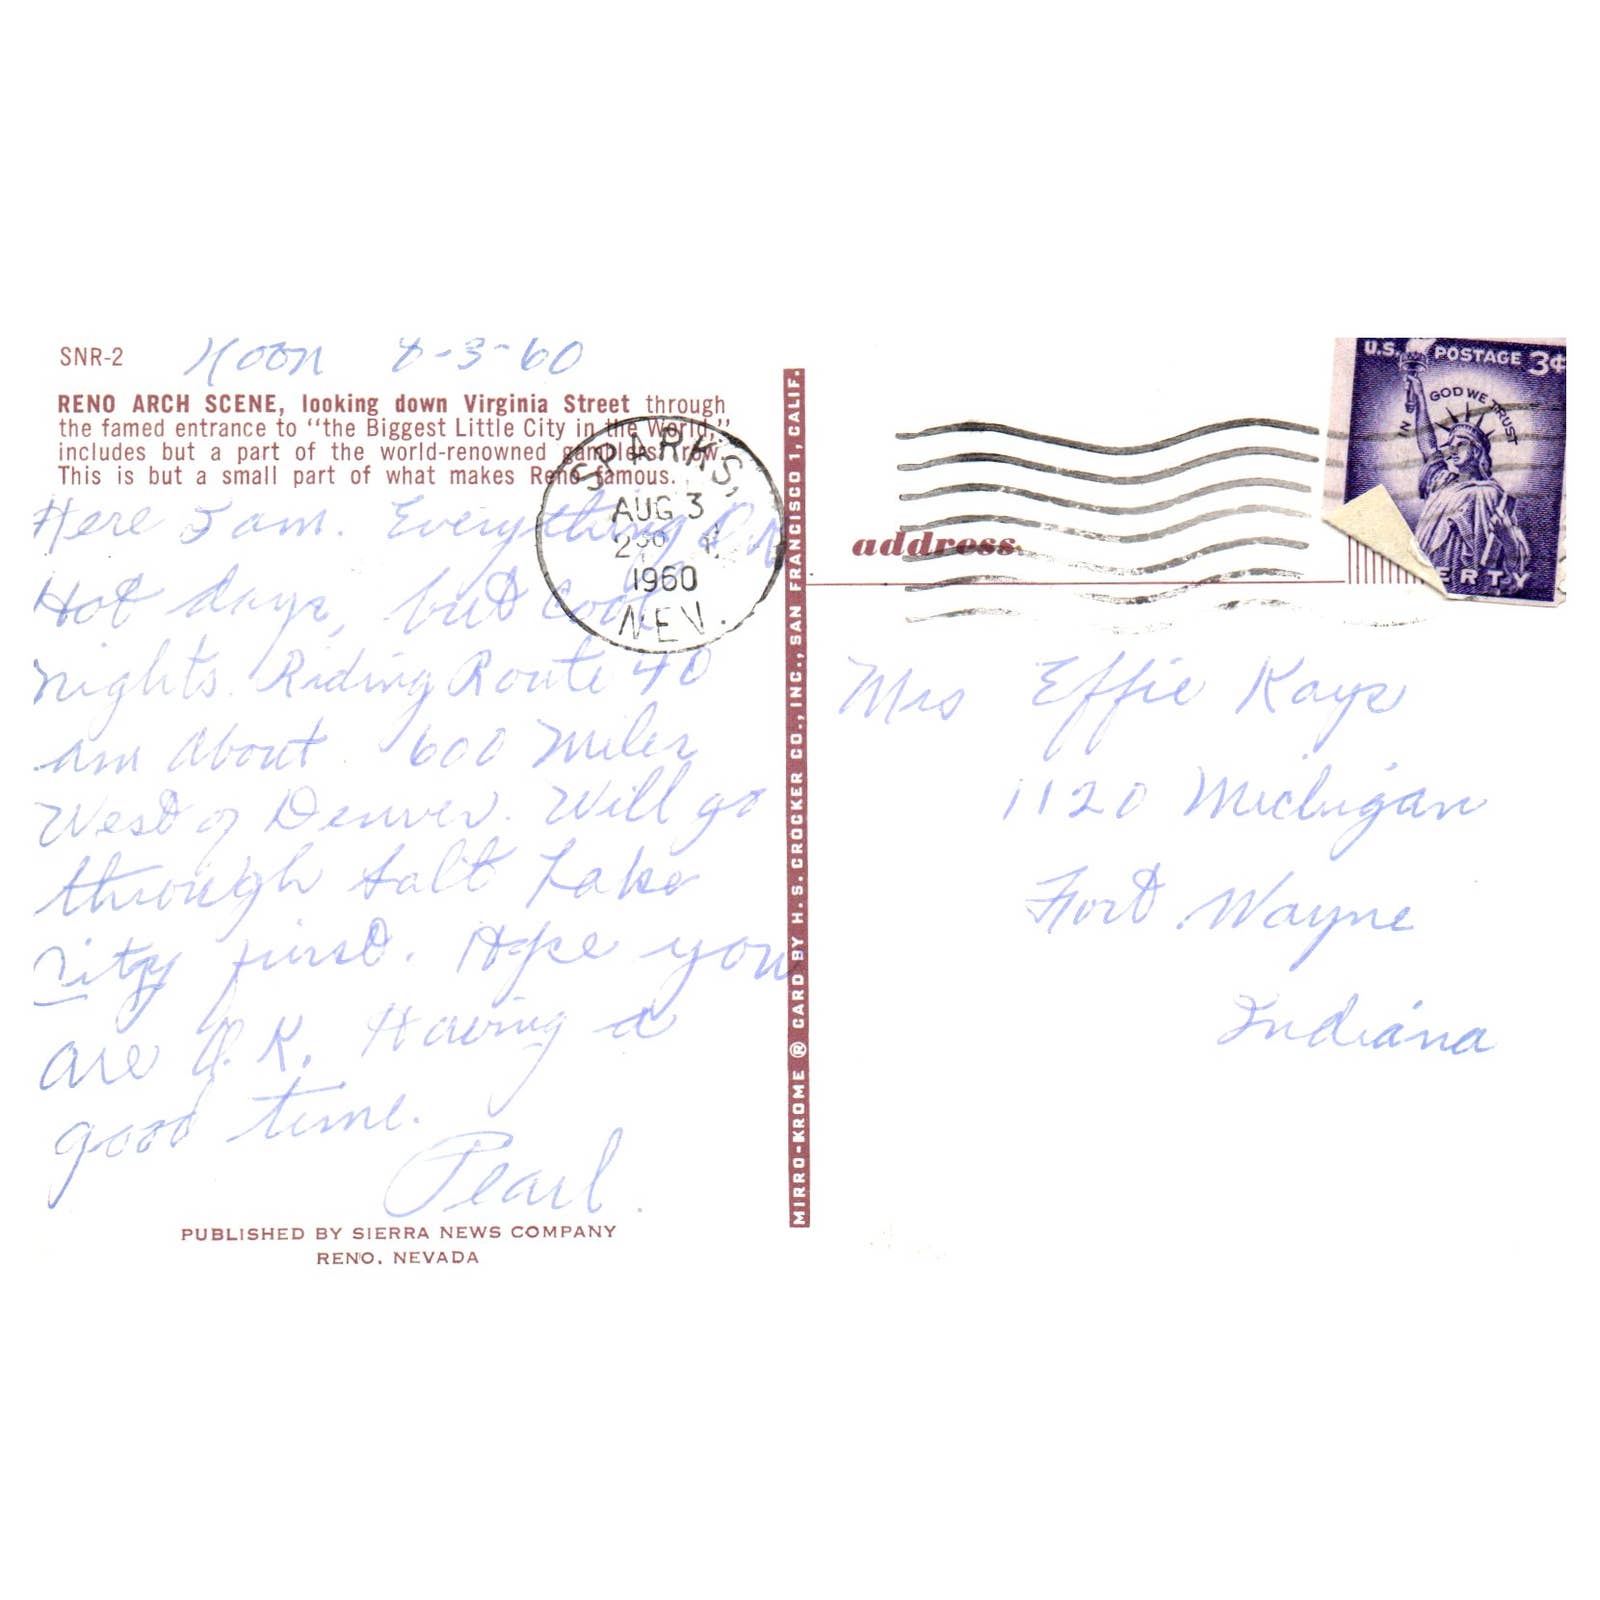 SNR-2 Noon 8-3-60
RENO ARCH SCENE, looking down Virginia Street through
the famed entrance to "the Biggest Little City in the World,"
includes but a part of the world-renowned gamblers' row.
This is but a small part of what makes Reno famous.
Here I am. Everything O.K.
Hot days, but cool
nights. Riding Route 40
am about 600 miles
West of Denver. Will go
through Salt Lake
City first. Hope you
are O.K. Having a
good time.
Pearl.
PUBLISHED BY SIERRA NEWS COMPANY
RENO, NEVADA
SPARKS,
AUG 3
1960
NEV.
MIRRO-KROME ® CARD BY H. S. CROCKER CO., INC., SAN FRANCISCO 1, CALIF.
U.S. POSTAGE 3¢
IN GOD WE TRUST
ERTY
address
Mrs Effie Kays
1120 Michigan
Fort Wayne
Indiana